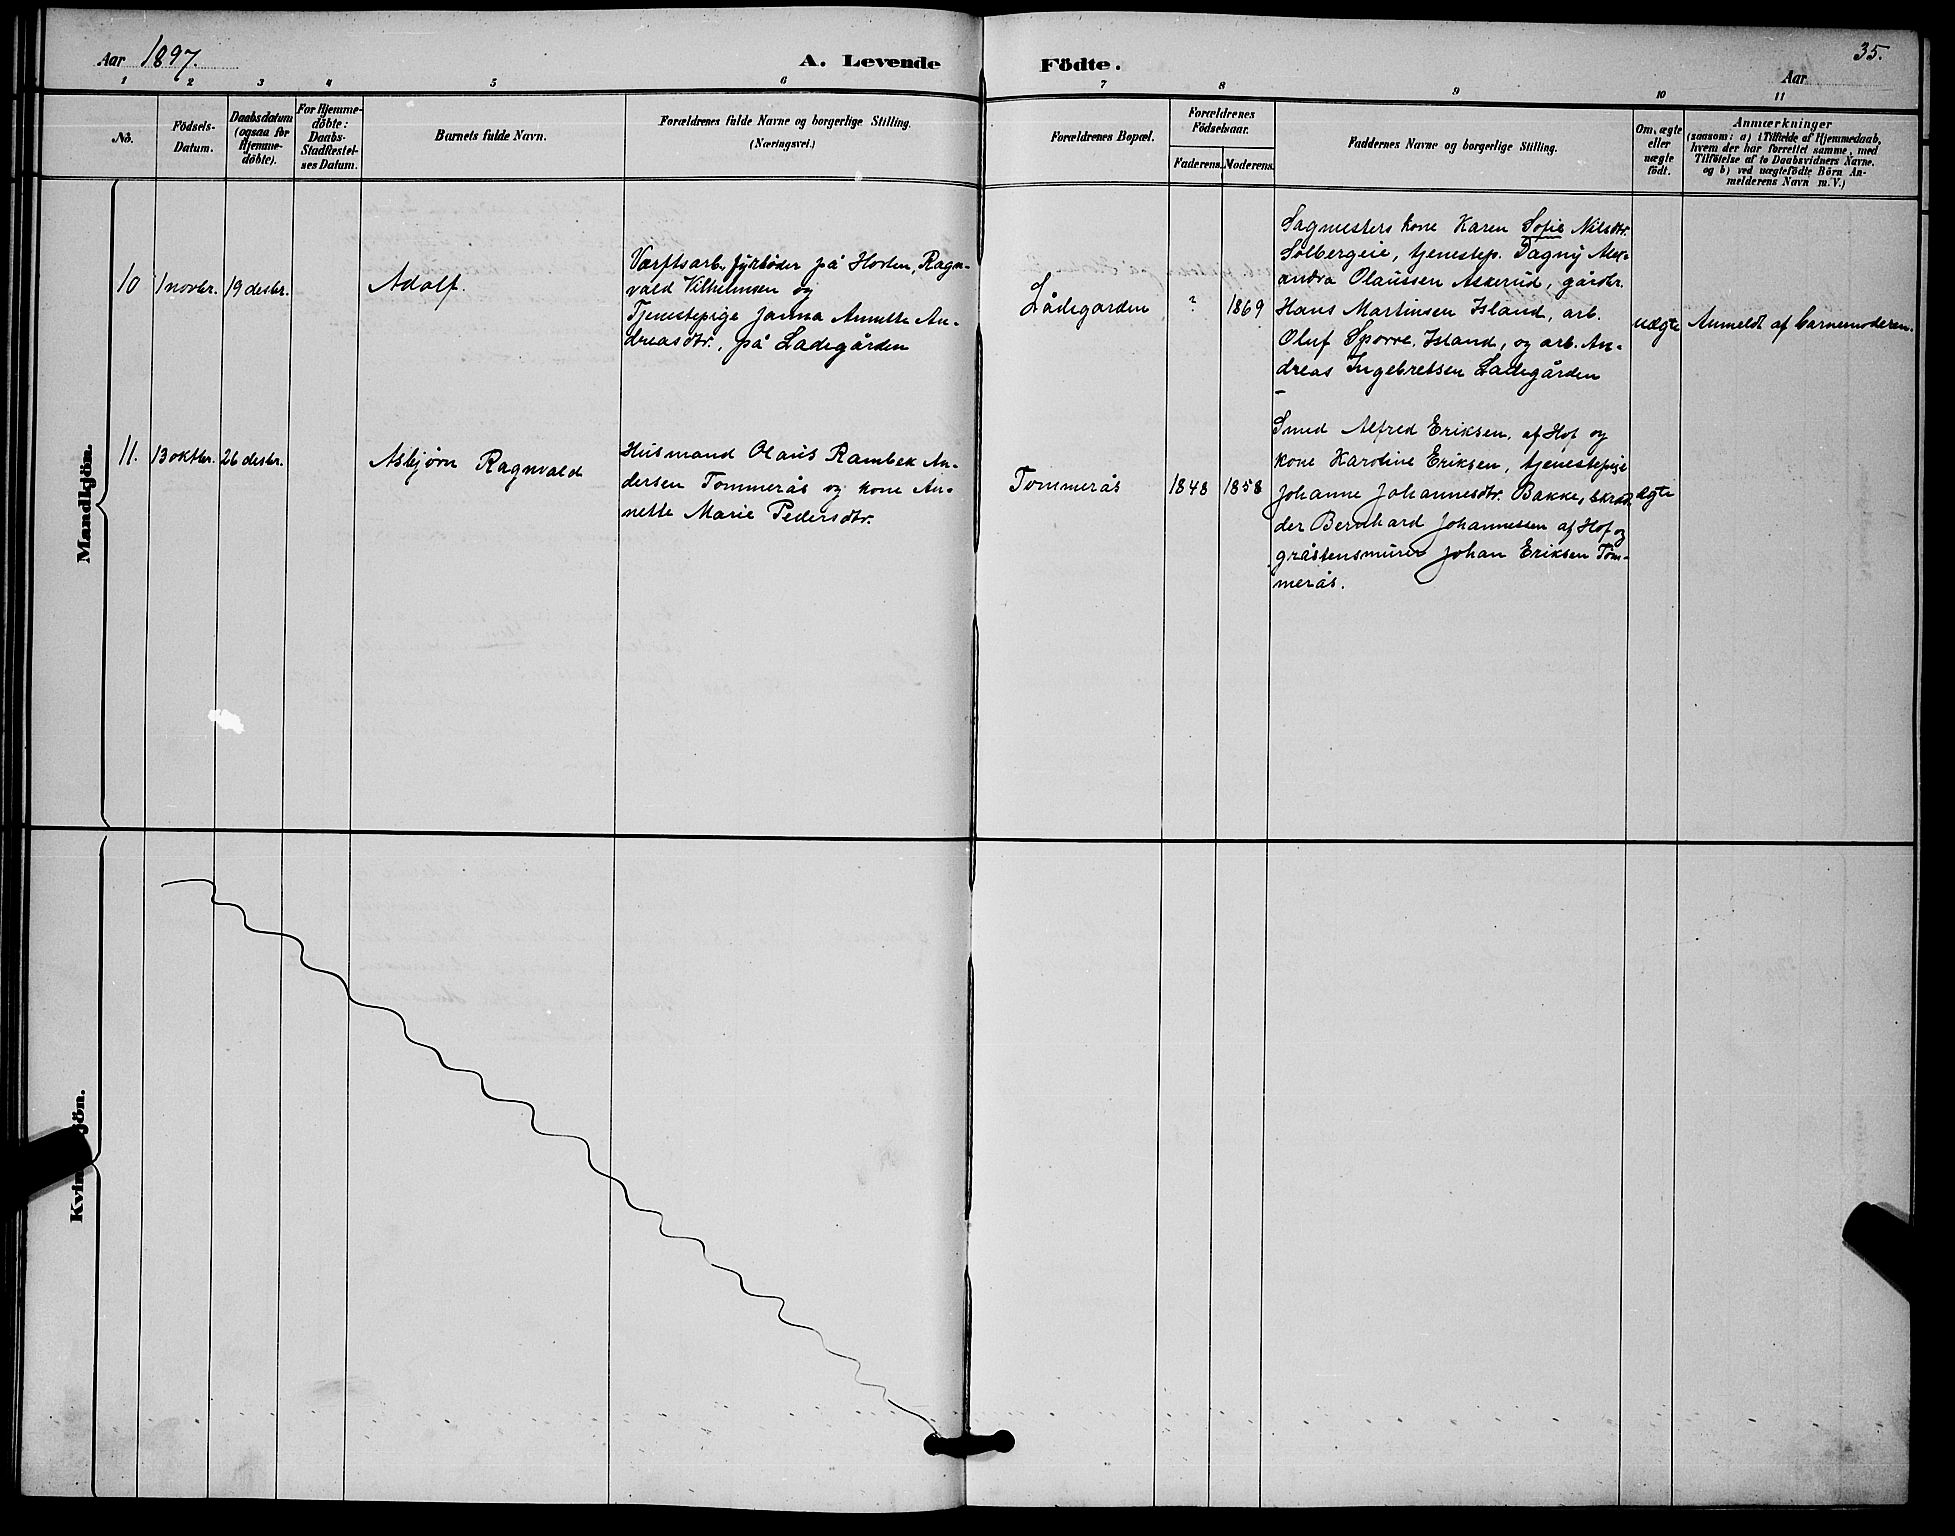 Aar 1897.
A. Levende Födte.
35.
Aar
1 2 3 4 5 6 7 8 9 10 11
No.
Födsels-
Datum.
Daabsdatum
(ogsaa for
Hjemme-
döbte).
For Hjemme-
döbte:
Daabs-
Stadfæstel-
ses Datum.
Barnets fulde Navn.
Forældrenes fulde Navne og borgerlige Stilling.
(Næringsvei.)
Forældrenes Bopæl.
Forældrenes
Födselsaar.
Faderens. Moderens.
Faddernes Navne og borgerlige Stilling.
Om ægte
eller
uægte
födt.
Anmærkninger
(saasom: a) i Tilfælde af Hjemmedaab,
hvem der har forrettet samme, med
Tilföielse af to Daabsvidners Navne.
og b) ved uægtefödte Börn An-
melderens Navn m.V.)
Mandkjön.
10
1 novbr.
19 desbr.
Adolf.
Værftsarb. fyrbøder på Horten, Ragn-
vald Vilhelmsen og
Tjenestepige Janna Annette An-
dreasdtr., på Ladegården
Ládegarden
?
1869
Sagmesters kone Karen Sofie Nilsdtr.
Solbergeie, tjenestep. Dagny Alex-
andra Olaussen Askerud, gårdbr.
Hans Martinsen Island, arb.
Oluf Sporre, Island, og arb. An-
dreas Ingebretsen Ladegården
uægte
Anmeldt af barnemoderen.
11.
13 oktbr.
26 desbr.
Asbjørn Ragnvald
Husmand Olaus Rambek An-
dersen Tommerås og kone An-
nette Marie Pedersdtr.
Tommerås
1848
1858
Smed Alfred Eriksen, af Hof og
kone Karoline Eriksen, tjenestepige
Johanne Johannesdtr. Bakke, skræd-
der Bernhard Johannessen af Hof og
gråstensmurer Johan Eriksen Tom-
merås.
ægte